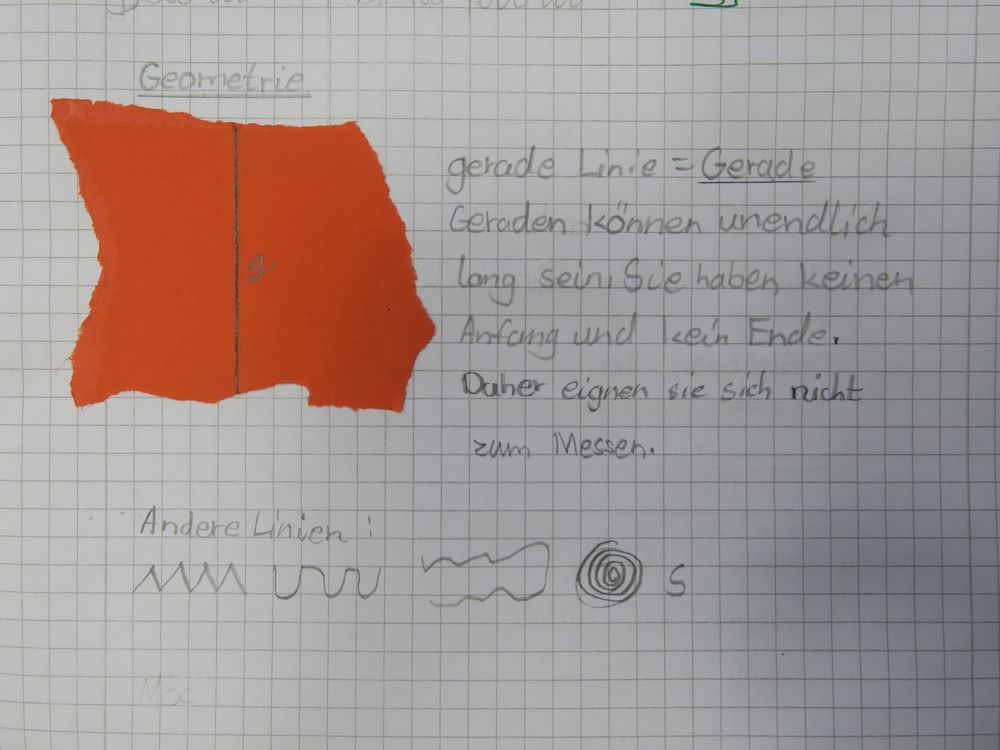 Geometrie
g
gerade Linie = Gerade
Geraden können unendlich
lang sein, Sie haben keinen
Anfang und kein Ende.
Daher eignen sie sich nicht
zum Messen.
Andere Linien :
S